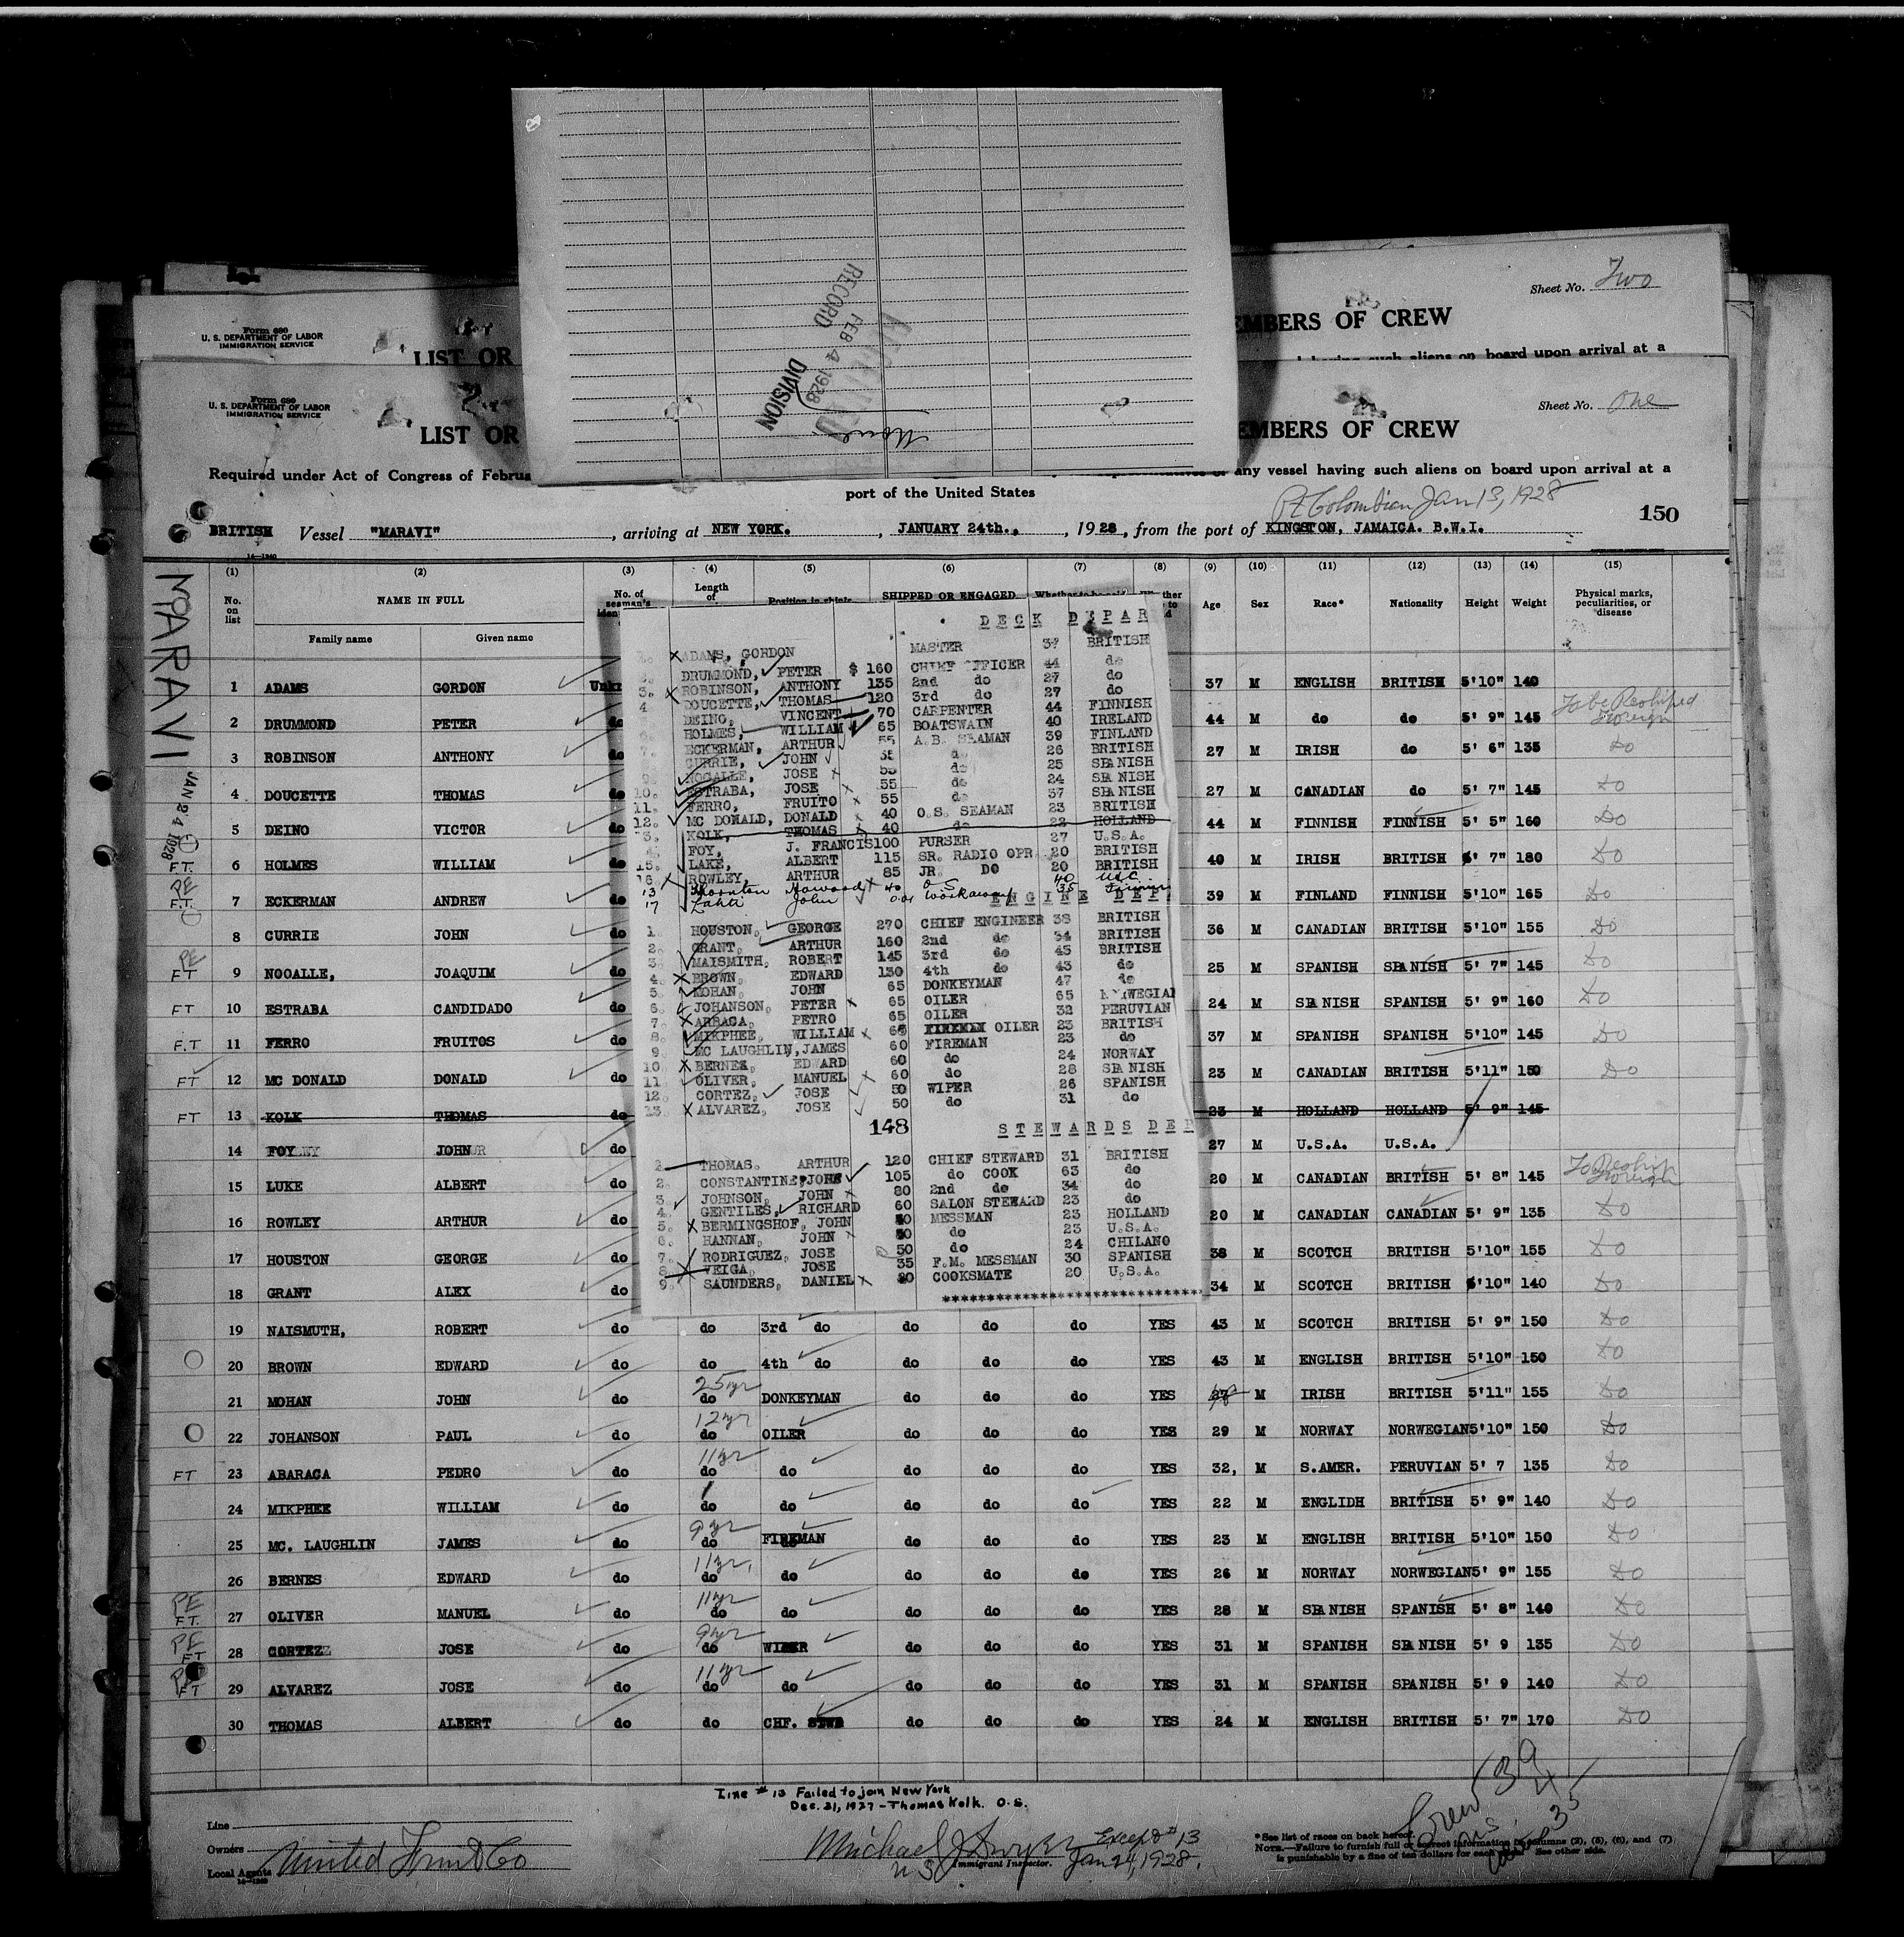 RECORD
FEB 4 1928
DIVISION
Sheet No. Two
Form 680
U. S. DEPARTMENT OF LABOR
IMMIGRATION SERVICE
LIST OR
EMBERS OF CREW
such aliens on board upon arrival at a
Form 680
U. S. DEPARTMENT OF LABOR
IMMIGRATION SERVICE
Sheet No. One
LIST OR
EMBERS OF CREW
Required under Act of Congress of Februa
any vessel having such aliens on board upon arrival at a
port of the United States
Pt Colombia Jan 13, 1928
150
BRITISH Vessel "MARAVI", arriving at NEW YORK., JANUARY 24th., 1928, from the port of KINGSTON, JAMAICA. B.W.I.
14—1240
MARAVI
JAN 24 1928
(1) (2) (3) (4) (5) (6) (7) (8) (9) (10) (11) (12) (13) (14) (15)
No. on list NAME IN FULL No. of seaman's Length of Position in ship's SHIPPED OR ENGAGED Age Sex Race* Nationality Height Weight Physical marks, peculiarities, or disease
Family name Given name
DECK DEPAR
ADAMS, GORDON MASTER 37 BRITISH
DRUMMOND, PETER $ 160 CHIEF OFFICER 44 do
3. ROBINSON, ANTHONY 135 2nd do 27 do
4 DOUCETTE, THOMAS 120 3rd do 27 do
DEINO, VINCENT 70 CARPENTER 44 FINNISH
6. HOLMES, WILLIAM 65 BOATSWAIN 40 IRELAND
7. ECKERMAN, ARTHUR 55 A.B. SEAMAN 39 FINLAND
CURRIE, JOHN 55 do 26 BRITISH
9. NOOALLE, JOSE 55 do 25 SPANISH
10. ESTRABA, JOSE 55 do 24 SPANISH
11. FERRO, FRUITO 55 do 37 SPANISH
12. MC DONALD, DONALD 40 O.S. SEAMAN 23 BRITISH
3. KOLK, THOMAS 40 do 22 HOLLAND
FOY, J. FRANCIS 100 PURSER 27 U.S.A.
15. LAKE, ALBERT 115 SR. RADIO OPR 20 BRITISH
16. ROWLEY, ARTHUR 85 JR. DO 20 BRITISH
13 Thornton Howood 40 O S 40 USC
17 Lahti John 0.01 Workaway 35
ENGINE DEP
1. HOUSTON, GEORGE 270 CHIEF ENGINEER 38 BRITISH
2. GRANT, ARTHUR 160 2nd do 34 BRITISH
3. MAISMITH, ROBERT 145 3rd do 45 BRITISH
4. BROWN, EDWARD 130 4th do 43 do
5. KOHAN, JOHN 65 DONKEYMAN 47 do
6. JOHANSON, PETER 65 OILER 65 NORWEGIAN
7. ARBACA, PETRO 65 OILER 32 PERUVIAN
8. MIKPHEE, WILLIAM 65 FIREMAN OILER 23 BRITISH
9. MC LAUGHLIN, JAMES 60 FIREMAN 23 do
10. BERNES, EDWARD 60 do 24 NORWAY
11. OLIVER, MANUEL 60 do 28 SPANISH
12. CORTEZ, JOSE 50 WIPER 26 SPANISH
13. ALVAREZ, JOSE 50 do 31 do
148
STEWARDS DEP
THOMAS. ARTHUR 120 CHIEF STEWARD 31 BRITISH
2. CONSTANTINE, JOHN 105 do COOK 63 do
3. JOHNSON, JOHN 80 2nd do 34 do
4. GENTILES, RICHARD 60 SALON STEWARD 23 do
5. BERMINGSHOF, JOHN 50 MESSMAN 23 HOLLAND
6. HANNAN, JOHN 50 do 23 U.S.A.
7. RODRIGUEZ, JOSE 50 do 24 CHILANO
8. VEIGA, JOSE 35 F.M. MESSMAN 30 SPANISH
9. SAUNDERS, DANIEL 20 COOKSMATE 20 U.S.A.
1 ADAMS GORDON 37 M ENGLISH BRITISH 5'10" 140
2 DRUMMOND PETER do 44 M do do 5' 9" 145 To be Reshiped Foreign
3 ROBINSON ANTHONY do 27 M IRISH do 5' 6" 135 Do
4 DOUCETTE THOMAS do 27 M CANADIAN do 5' 7" 145 Do
5 DEINO VICTOR do 44 M FINNISH FINNISH 5' 5" 160 Do
F.T. 6 HOLMES WILLIAM do 40 M IRISH BRITISH 5' 7" 180 Do
PE F.T. 7 ECKERMAN ANDREW do 39 M FINLAND FINNISH 5'10" 165 Do
8 CURRIE JOHN do 36 M CANADIAN BRITISH 5'10" 155 Do
PE FT 9 NOOALLE, JOAQUIM do 25 M SPANISH SPANISH 5' 7" 145 Do
FT 10 ESTRABA CANDIDADO do 24 M SPANISH SPANISH 5' 9" 160 Do
F.T 11 FERRO FRUITOS do 37 M SPANISH SPANISH 5'10" 145 Do
FT 12 MC DONALD DONALD do 23 M CANADIAN BRITISH 5'11" 150 Do
FT 13 KOLK THOMAS do 23 M HOLLAND HOLLAND 5' 9" 145
14 FOY JOHN do 27 M U.S.A. U.S.A.
15 LUKE ALBERT do 20 M CANADIAN BRITISH 5' 8" 145 To Reship Foreign
16 ROWLEY ARTHUR do 20 M CANADIAN CANADIAN 5' 9" 135 Do
17 HOUSTON GEORGE do 38 M SCOTCH BRITISH 5'10" 155 Do
18 GRANT ALEX do 34 M SCOTCH BRITISH 5'10" 140 Do
19 NAISMUTH, ROBERT do do 3rd do do do do YES 43 M SCOTCH BRITISH 5' 9" 150 Do
20 BROWN EDWARD do do 4th do do do do YES 43 M ENGLISH BRITISH 5'10" 150 Do
21 MOHAN JOHN do 25 yr do DONKEYMAN do do do YES M IRISH BRITISH 5'11" 155 Do
22 JOHANSON PAUL do 12 yr do OILER do do do YES 29 M NORWAY NORWEGIAN 5'10" 150 Do
FT 23 ABARACA PEDRO do 11 yr do do do do do YES 32, M S.AMER. PERUVIAN 5' 7 135 Do
24 MIKPHEE WILLIAM do 1 do do do do do YES 22 M ENGLIDH BRITISH 5' 9" 140 Do
25 MC. LAUGHLIN JAMES do 9 yr do FIREMAN do do do YES 23 M ENGLISH BRITISH 5'10" 150 Do
26 BERNES EDWARD do 11 yr. do do do do do YES 26 M NORWAY NORWEGIAN 5' 9" 155 Do
PE F.T. 27 OLIVER MANUEL do 11 yr do do do do do YES 28 M SPANISH SPANISH 5' 8" 140 Do
PE FT 28 CORTEZ JOSE do 9 yr do WIPER do do do YES 31 M SPANISH SPANISH 5' 9 135 Do
PE FT 29 ALVAREZ JOSE do 11 yr do do do do do YES 31 M SPANISH SPANISH 5' 9 140 Do
30 THOMAS ALBERT do do CHF. STWD do do do YES 24 M ENGLISH BRITISH 5' 7" 170 Do
Line # 13 Failed to join New York
Dec. 31, 1927 - Thomas Kolk. O.S.
Line
Owners
Local Agents United Fruit Co
14—1240
Michael J Dwyer Except # 13
U S Immigrant Inspector. Jan 24, 1928.
Crew 39
35
* See list of races on back hereof.
NOTE.—Failure to furnish full or correct information in columns (2), (5), (6), and (7)
is punishable by a fine of ten dollars for each See other side.